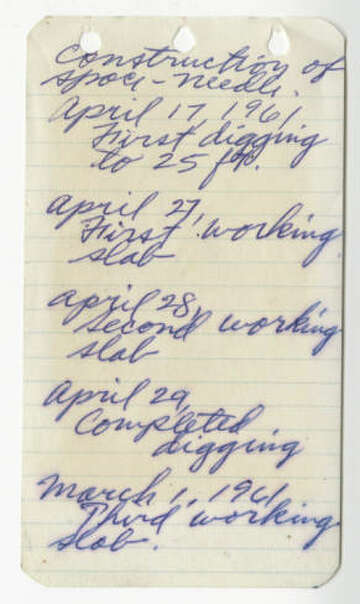 Construction of
space-needle.
April 17, 1961
First digging
to 25 ft.
April 27,
First working
slab
April 28,
second working
slab
April 29,
Completed
digging
March 1, 1961
Third working
slab.